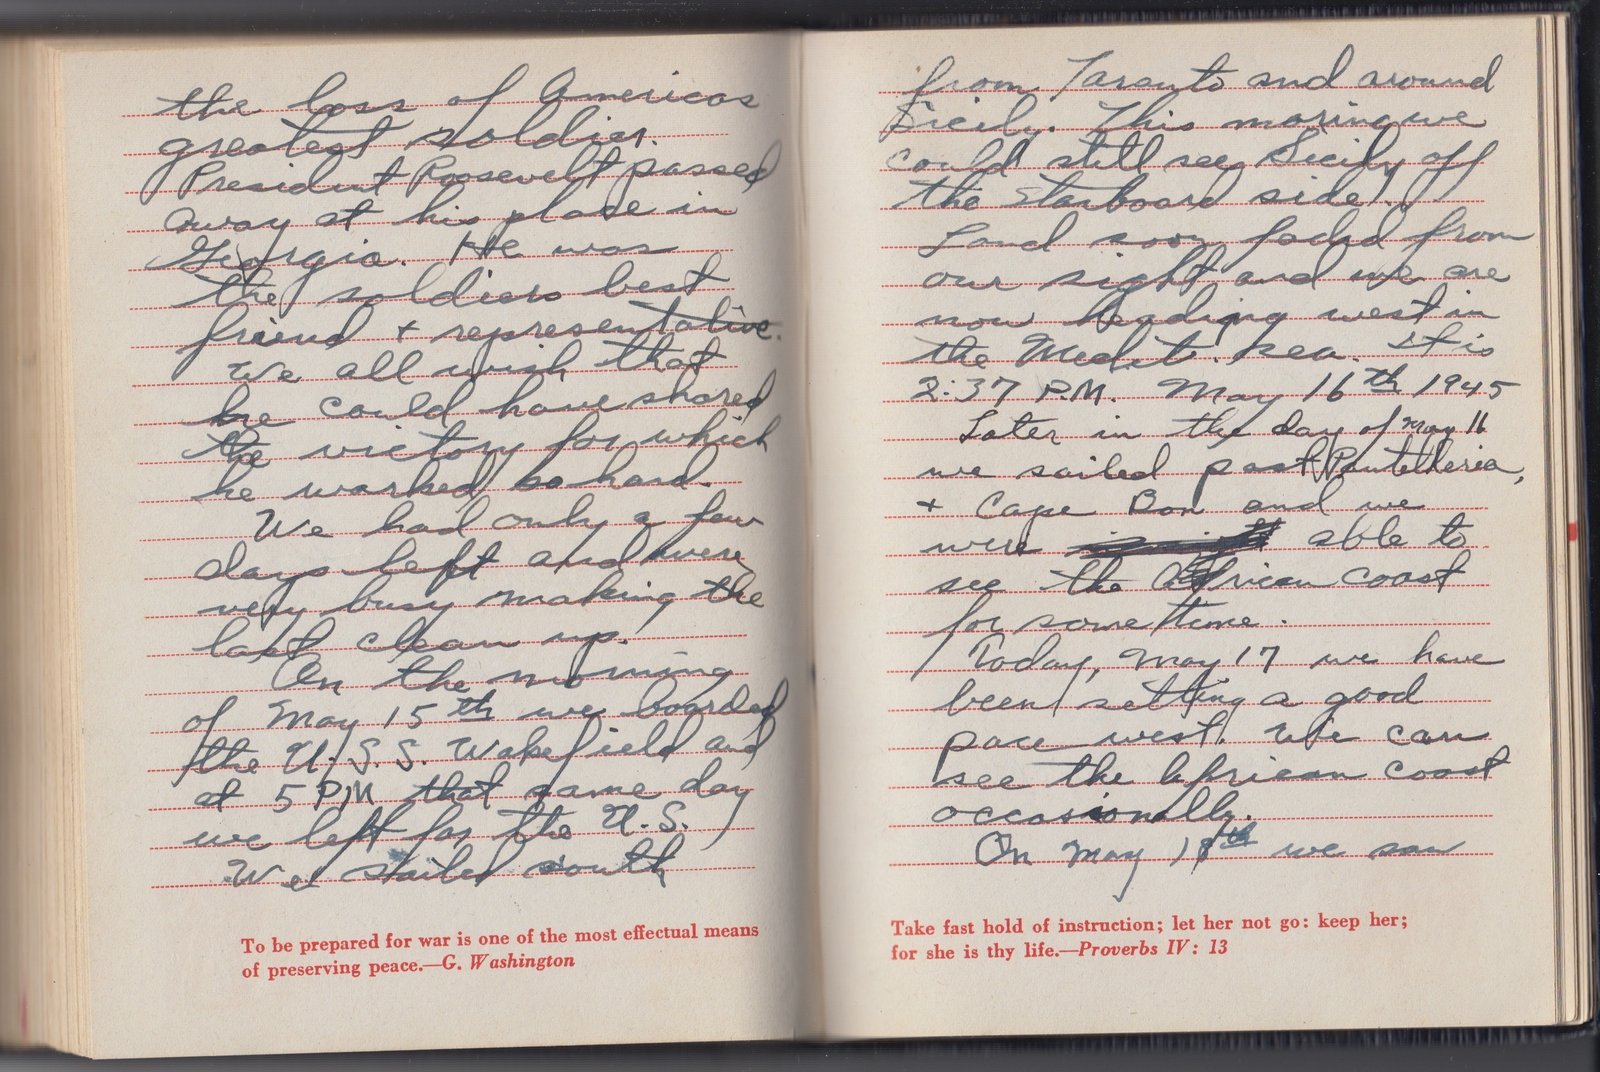 the loss of Americas
greatest soldier.
President Roosevelt passed
away at his place in
Georgia. He was
the soldiers best
friend + representative.
We all wish that
he could have shared
the victory for which
he worked so hard.
We had only a few
days left and were
very busy making the
last clean up.
On the morning
of May 15th we boarded
the U.S.S. Wakefield and
at 5 PM that same day
we left for the U.S.
We sailed south
To be prepared for war is one of the most effectual means
of preserving peace.—G. Washington
from Taranto and around
Sicily. This moring we
could still see Sicily off
the starboard side.
Land soon faded from
our sight and we are
now heading west in
the Medit. sea. It is
2:37 P.M. May 16th 1945
Later in the day of May 16
we sailed past Pantelleria,
+ Cape Bon and we
were able to
see the African coast
for some time.
Today, May 17 we have
been setting a good
pace west. We can
see the African coast
occasionally.
On May 18th we saw
Take fast hold of instruction; let her not go: keep her;
for she is thy life.—Proverbs IV: 13